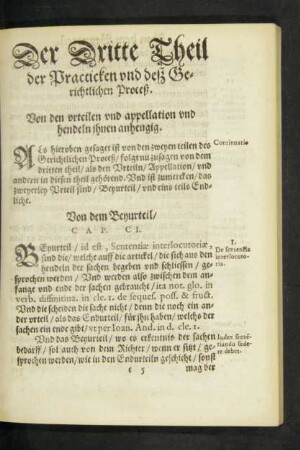 Der Dritte Theil
der Practicken vnd deß Ge-
richtlichen Proceß.
Von den vrteilen vnd appellation vnd
hendeln jhnen anhengig.
ALs hieroben gesaget ist von den zweyen teilen des
Gerichtlichen Proceß / folgt nu zusagen von dem
dritten theil / als den Vrteiln / Appellation / vnd
andern in diesen theil gehörend. Vnd ist zumercken / das
zweyerley Vrteil sind / Beyurteil / vnd eins teils End-
licht.
Continuatio
Von dem Beyurteil /
CAP. CI.
BEyurteil / id est, Sententiæ interlocutoriæ,
sind die / welche auff die artickel / die sich aus den
hendeln der sachen begeben vnd schliessen / ge-
sprochen werden / Vnd werden also zwischen dem an-
fange vnd ende der sachen gebraucht / ita not. glo. in
verb. diffinitiua. in cle. 1. de sequest. poss. & fruct.
Vnd die scheiden die sache nicht / denn die noch ein an-
der vrteil / als das Endurteil / für jhn haben / welchs der
sachen ein ende gibt / vt per Ioan. And. in d. cle. 1.
1.
De sententia
interlocuto-
ria.
Vnd das Beyurteil / wo es erkentnis der sachen
bedarff / sol auch von dem Richter / wenn er sitzt / ge-
sprochen werden / wie in den Endurteiln geschicht / sonst
Iudex senten-
tiando sede-
re debet.
mag der